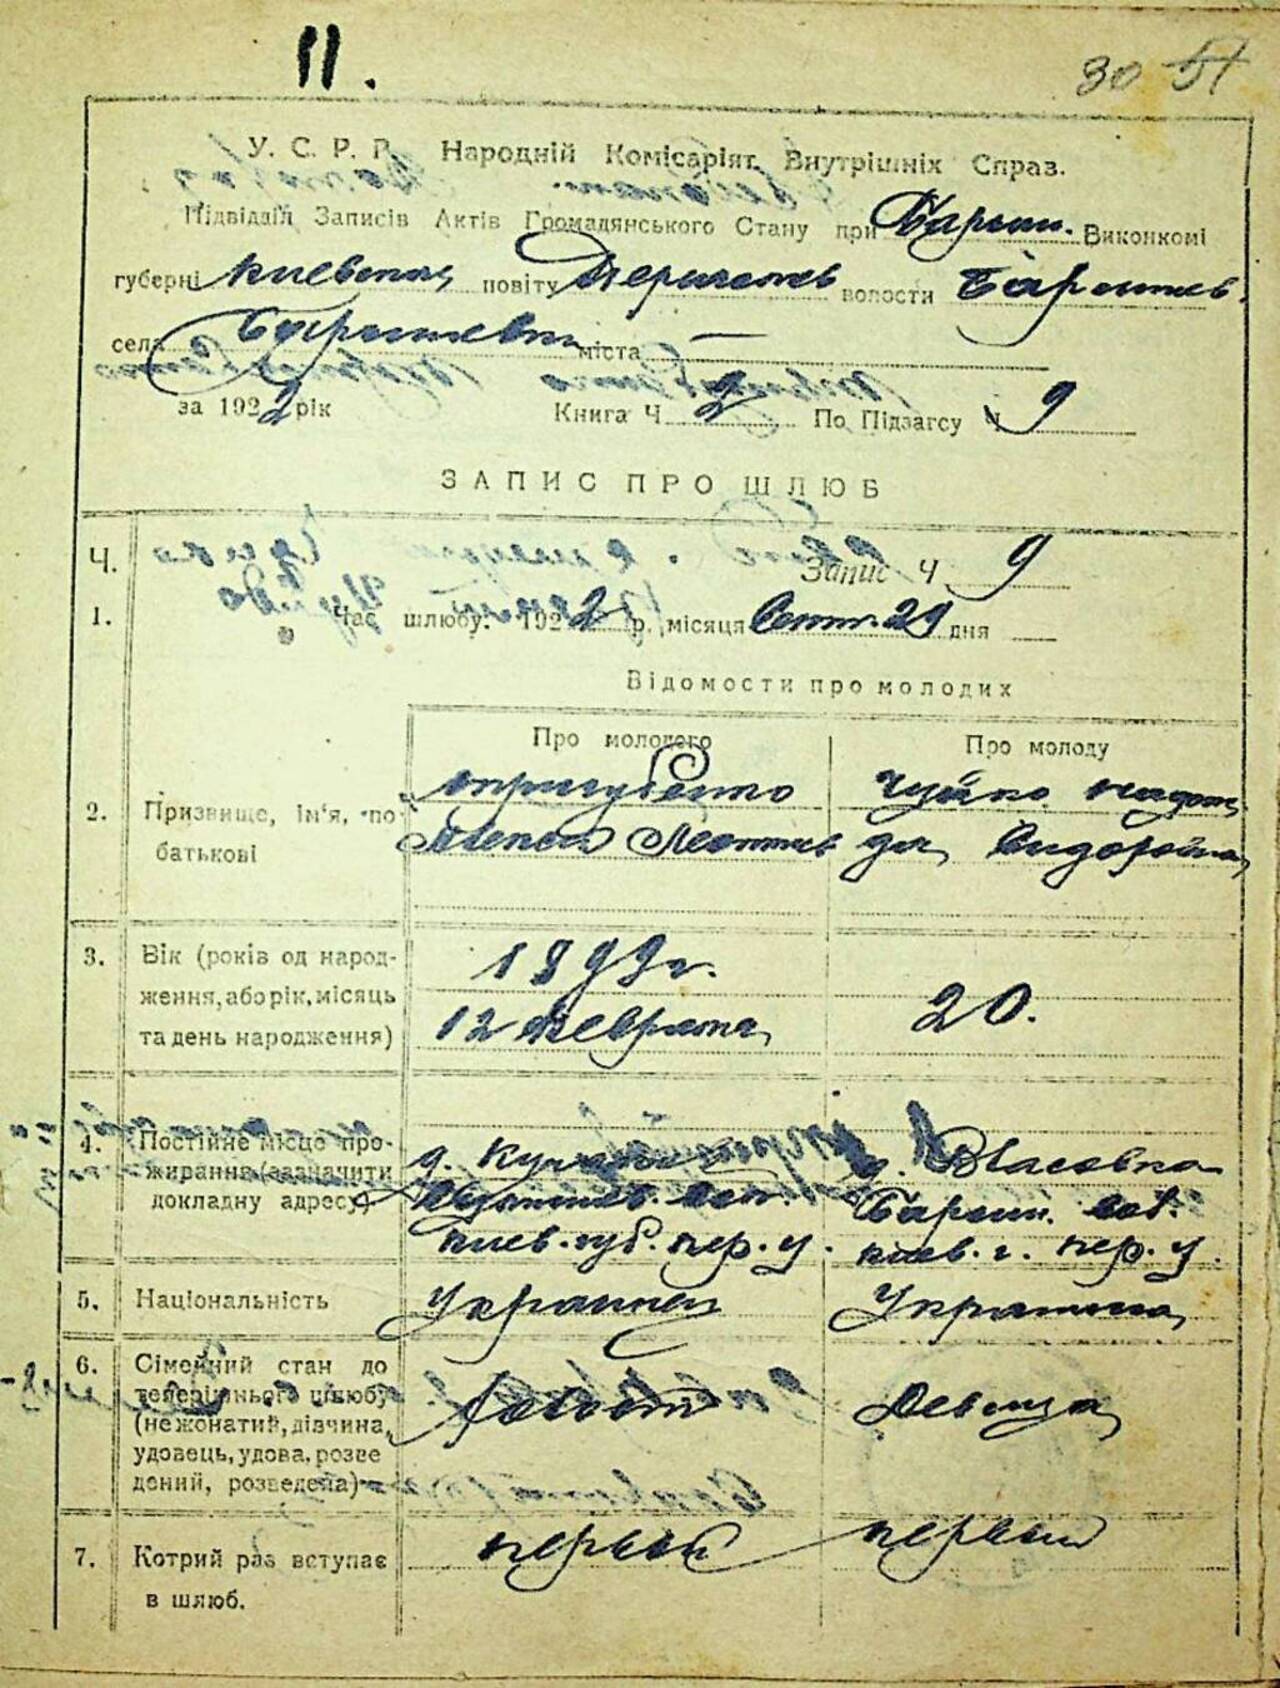 11.
30 51
У. С. Р. Р. Народній Комісаріят Внутрішніх Справ.
Підвідділ Записів Актів Громадянського Стану при Барыш. Виконкомі
губерні Киевская повіту волости Барышев.
села Барышевки міста —
за 1922 рік Книга Ч. 2 По Підзагсу Ч 9
ЗАПИС ПРО ШЛЮБ
Ч. Запис Ч 9
1. Час шлюбу: 1922 р. місяця Сент. 29 дня
Відомости про молодих
Про молодого Про молоду
2. Призвище, ім'я, по-
батькові
Чуйко Надеж
Алексей Леонтиев да Сидоровна
3. Вік (років од народ-
ження, або рік, місяць
та день народження)
1899 г.
12 Февраля
20.
4. Постійне місце про-
живання (зазначити
докладну адресу)
д. Власовка
Барыш. вол.
Киев. губ. Пер. у. Киев. г. Пер. у.
5. Національність Украинец Украинка
6. Сімейний стан до
теперішнього шлюбу
(нежонатий, дівчина,
удовець, удова, розве
дений, розведена)
холост Девица
7. Котрий раз вступає
в шлюб.
первый первый